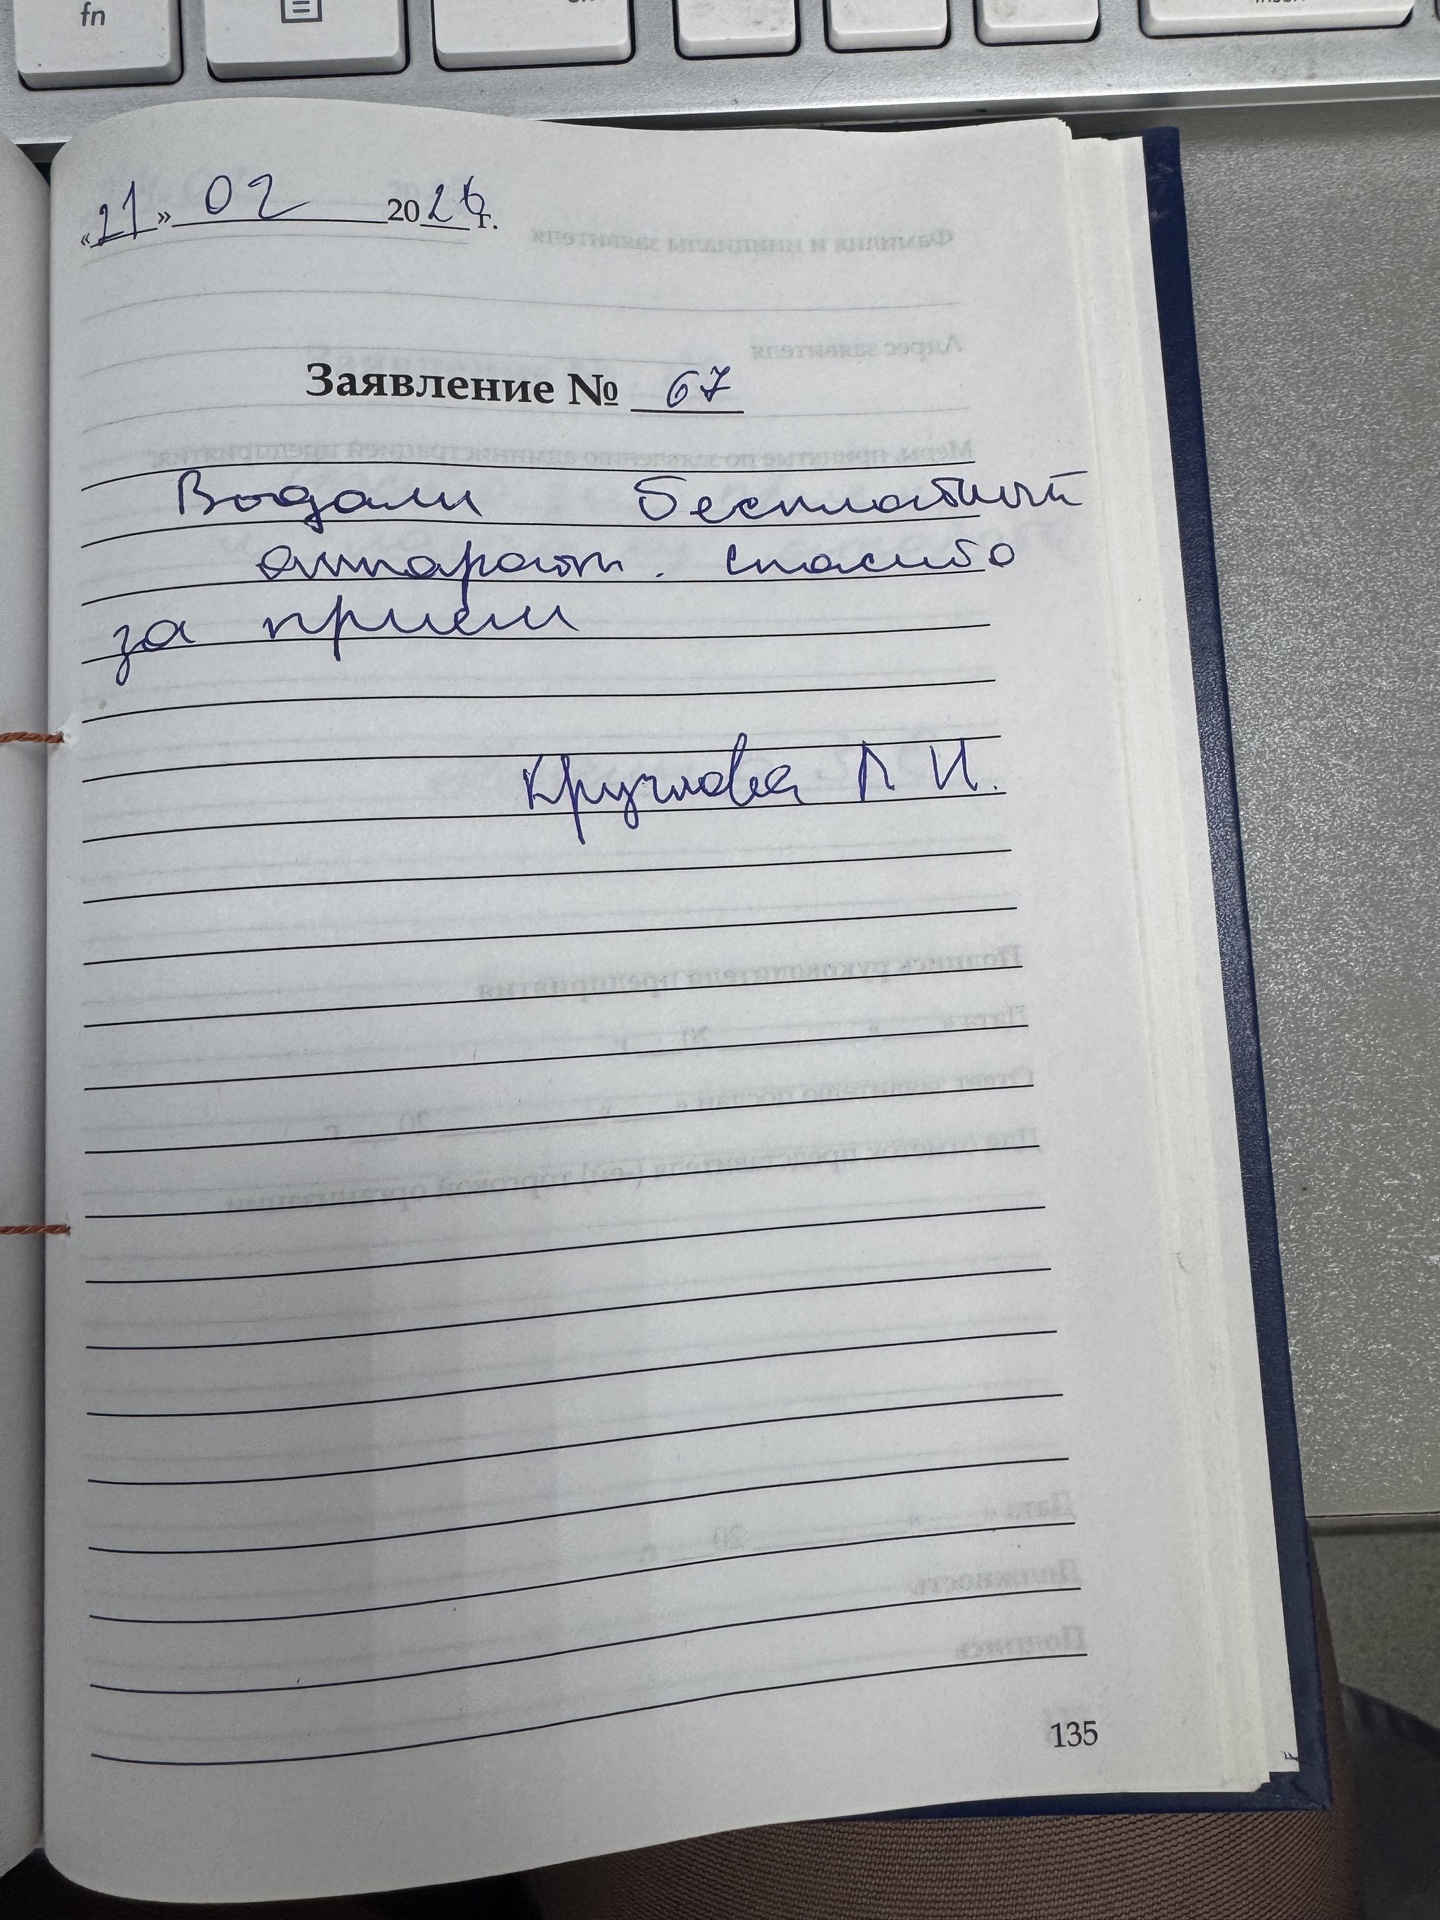 fn
«21» 02 2026 г.
Заявление № 67
Водали бесплатный
аппарат. спасибо
за прием
Круглова Л И.
135